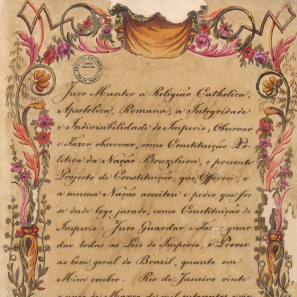 Juro Manter a Religião Catholica,
Apostolica, Romana; a Integridade
e Indivisibilidade do Imperio; Observar
e fazer observar, como Constituição Po-
litica da Nação Brazileira, o presente
Projecto de Constituição, que Offereci, e
a mesma Nação acceitou e pedio que fos-
se desde logo jurado, como Constituição do
Imperio: Juro Guardar e fazer guar
dar todas as Leis do Imperio, e Prover
ao bem geral do Brazil, quanto em
Mim couber. Rio de Janeiro vinte